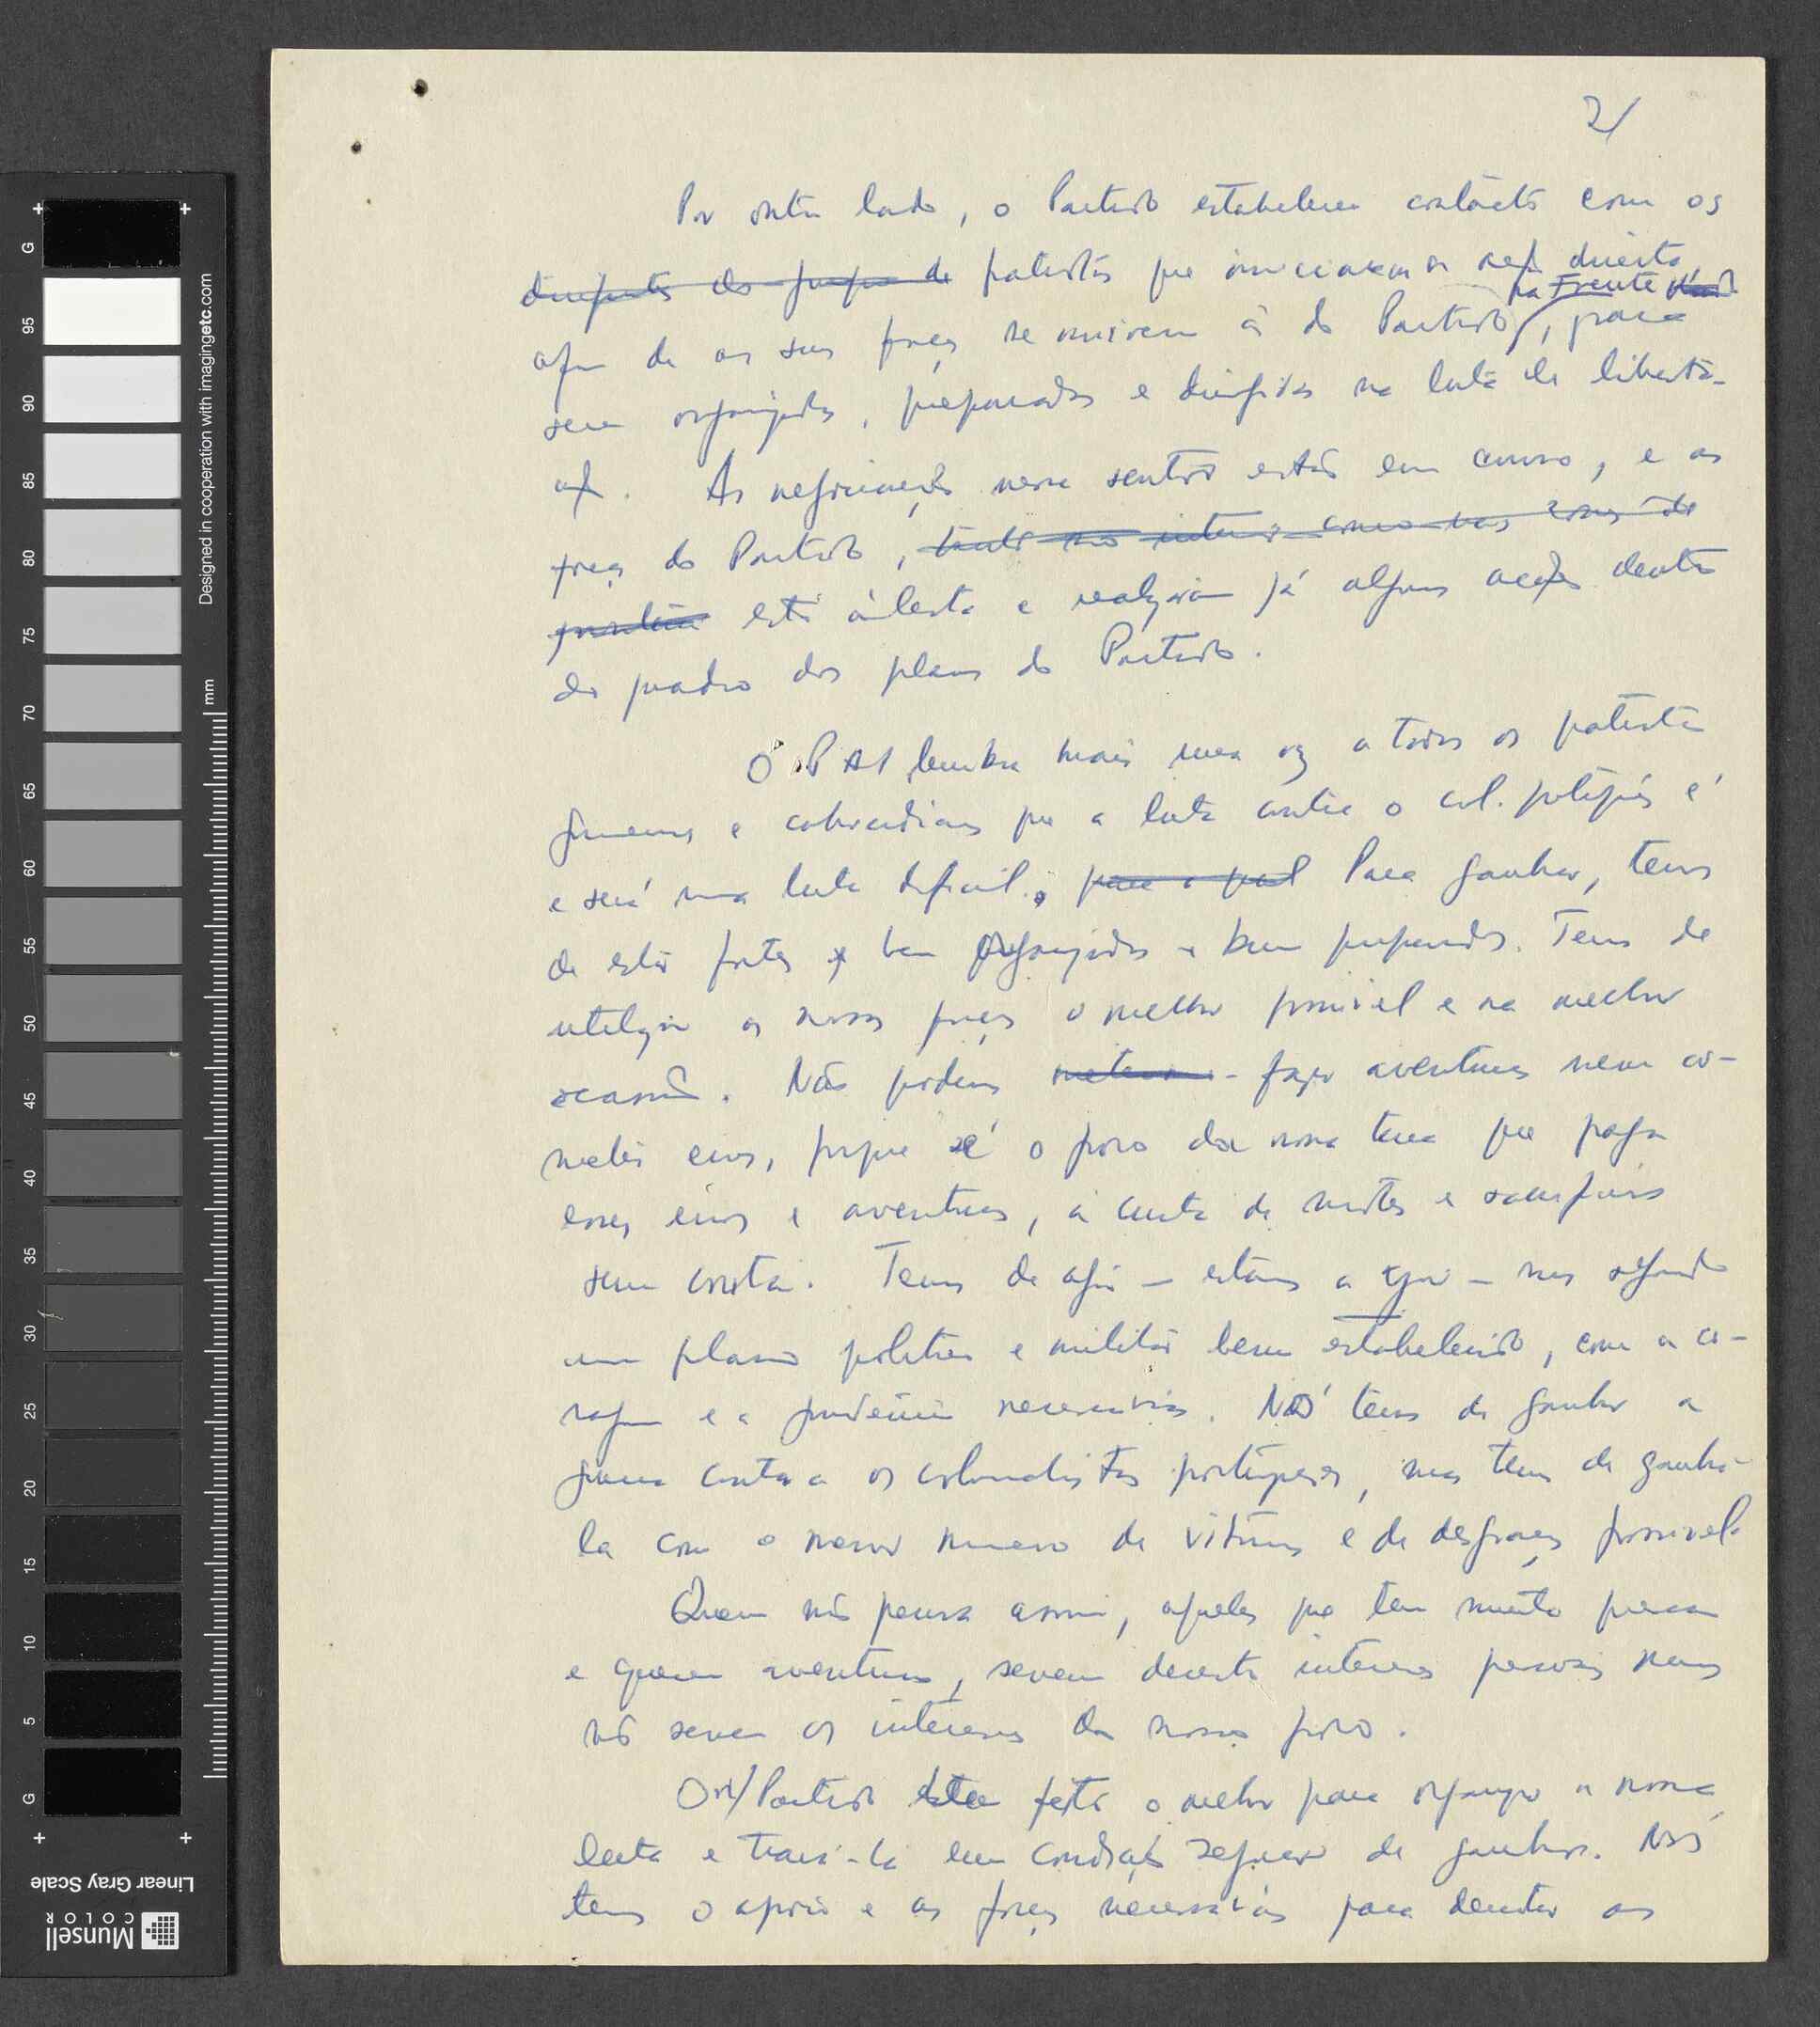 2/
Por outro lado, o Partido estabeleceu contácto com os
dirigentes do grupo de patriotas que iniciaram a acção directa,
na Frente
afim de as suas forças se unirem à do Partido, para
serem organizadas, preparadas e dirigidas na luta de liberta-
ção. As negociações nesse sentido estão em curso, e as
forças do Partido, tanto no interior como nas zonas de
fronteira está àlerta e realizaram já algumas acções dentro
do quadro dos planos do Partido.
O PAI lembra mais uma vez a todos os patriotas
guineenses e caboverdianos que a luta contra o col. português é
e será uma luta dificil. para a qual Para ganhar, temos
de estar fortes, bem organizados e bem preparados. Temos de
utilizar as nossas forças o melhor possivel e na melhor
ocasião. Não podemos fazer aventuras nem co-
meter erros, porque é o povo da nossa terra que paga
esses erros e aventuras, à custa de mortes e sacrificios
sem conta. Temos de agir — estamos a agir — mas segundo
um plano politico e militar bem estabelecido, com a co-
ragem e a prudência necessárias. Nós temos de ganhar a
guerra contra os colonialistas portugueses, mas temos de ganhá-
la com o menor numero de vitimas e de desgraças possivel.
Quem não pensa assim, aqueles que tem muita pressa
e querem aventuras, servem decerto interesses pessoais mas
não servem os interesses do nosso povo.
O n/ Partido está feito o melhor para organizar a nossa
luta e travá-la em condições seguras de ganhar. Nós
temos o apoio e as forças necessárias para derrotar os
G
95
90
85
80
75
70
65
60
55
50
45
40
35
30
25
20
15
10
5
G
mm
Designed in cooperation with imagingetc.com
Linear Gray Scale
Munsell
COLOR